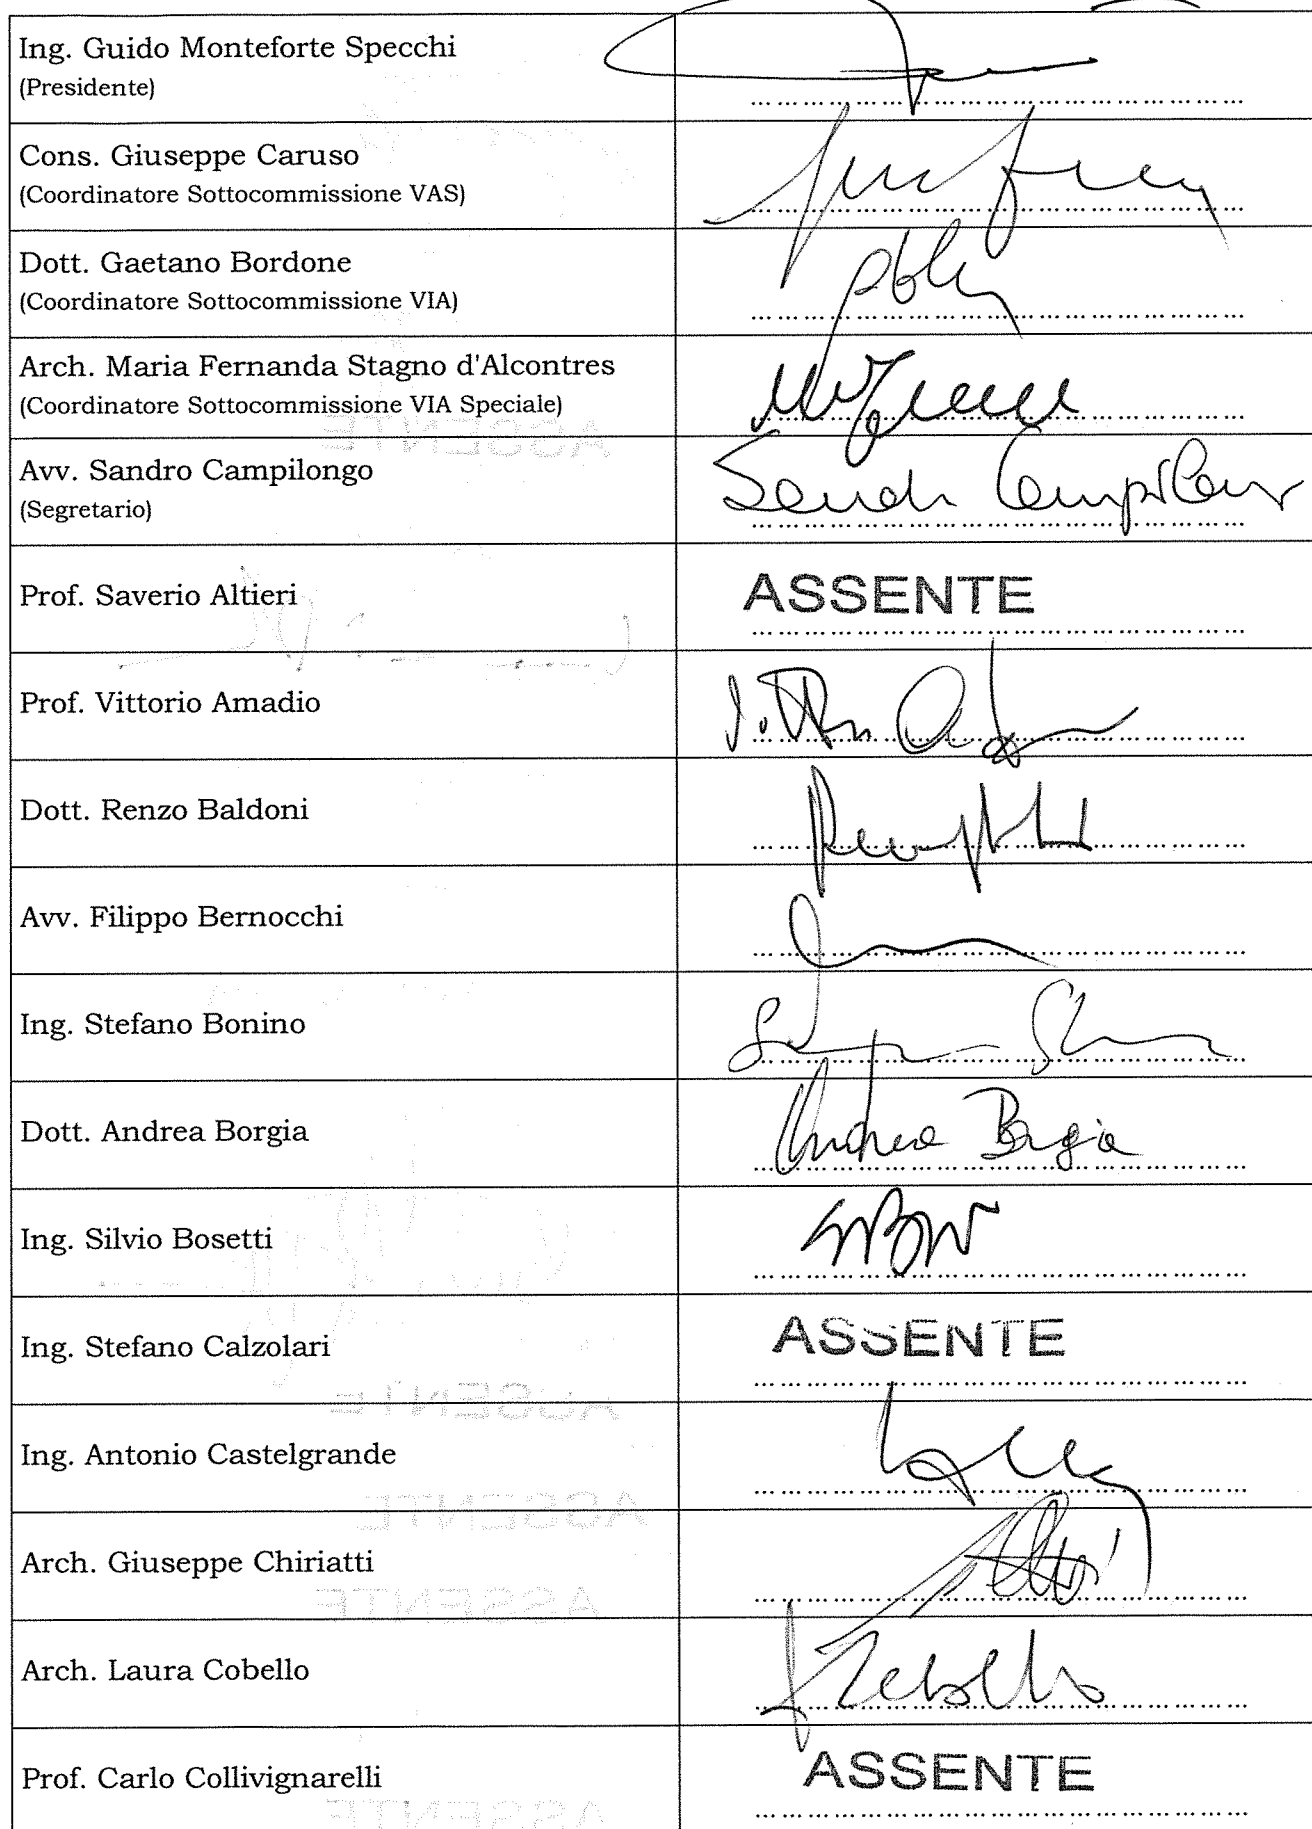 Ing. Guido Monteforte Specchi
(Presidente)
Cons. Giuseppe Caruso
(Coordinatore Sottocommissione VAS)
Dott. Gaetano Bordone
(Coordinatore Sottocommissione VIA)
Arch. Maria Fernanda Stagno d'Alcontres
(Coordinatore Sottocommissione VIA Speciale)
Avv. Sandro Campilongo
(Segretario)
Prof. Saverio Altieri ASSENTE
Prof. Vittorio Amadio
Dott. Renzo Baldoni
Avv. Filippo Bernocchi
Ing. Stefano Bonino
Dott. Andrea Borgia Andrea Borgia
Ing. Silvio Bosetti
Ing. Stefano Calzolari ASSENTE
Ing. Antonio Castelgrande
Arch. Giuseppe Chiriatti
Arch. Laura Cobello
Prof. Carlo Collivignarelli ASSENTE